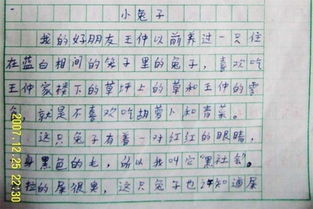 小兔子
我的好朋友王仲以前养过一只住
在蓝白相间的笼子里的兔子，喜欢吃
王仲家楼下的草坪上的草和王仲的零
食，就是不喜欢吃胡萝卜和青菜。
这只兔子有着一对红红的眼睛，
身黑色的毛，所以我叫它"黑社会"。
拉的屎很臭，这只兔子也许知道屎
2007.12.25 22:30